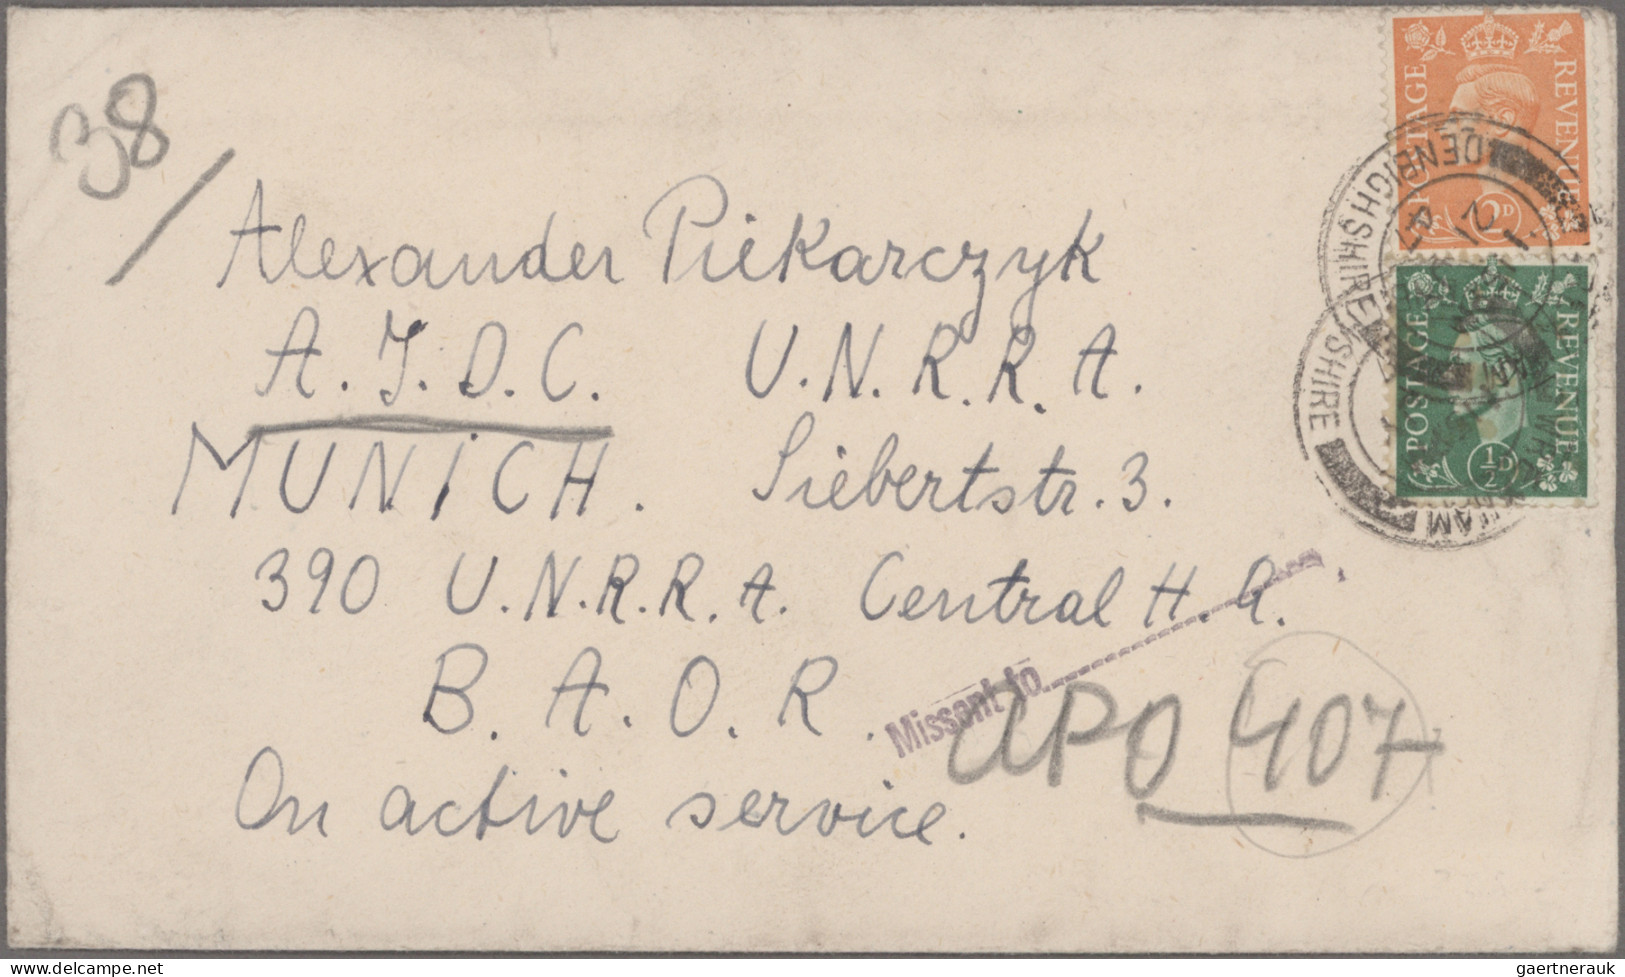 38
Alexander Piekarczyk
A.J.D.C. U.N.R.R.A.
MUNICH. Siebertstr. 3.
390 U.N.R.R.A. Central H.Q.
B.A.O.R.
On active service.
Missent to
APO 407
POSTAGE REVENUE
2D
DENBIGHSHIRE
POSTAGE REVENUE
½D
SHIRE
HAM
delcampe.net
gaertnerauk